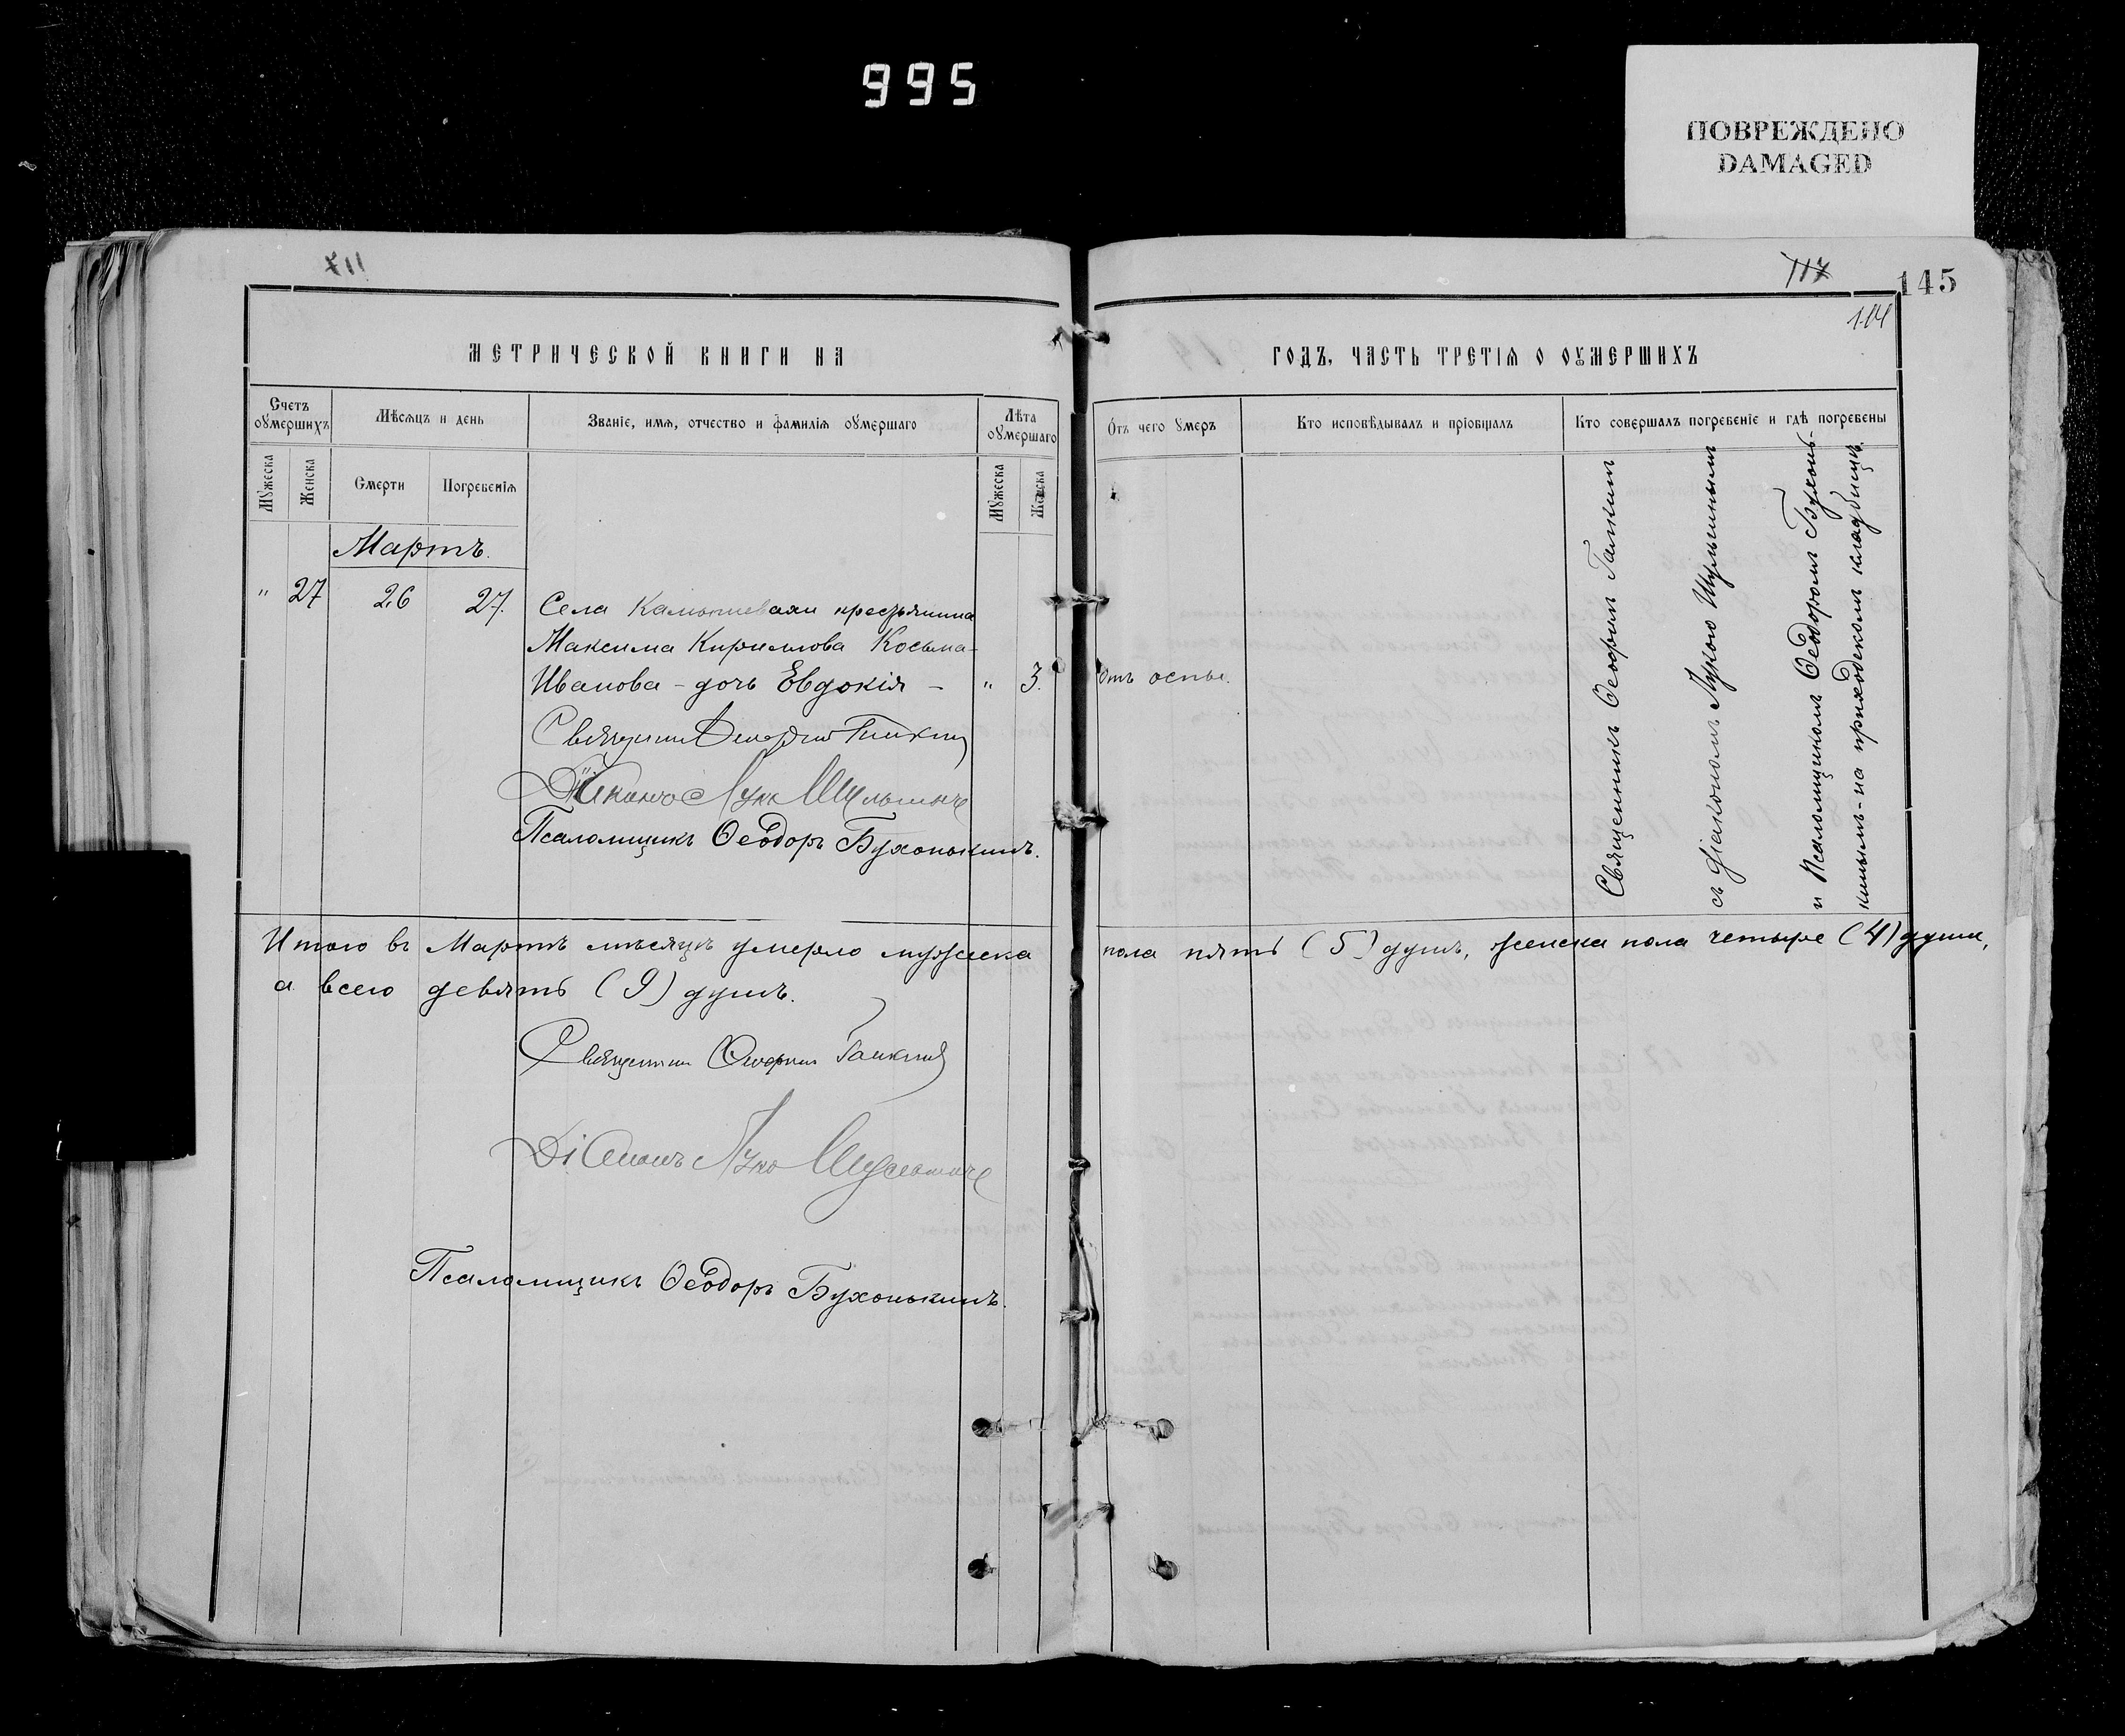 995
ПОВРЕЖДЕНО
DAMAGED
117
145
104
МЕТРИЧЕСКОЙ КНИГИ НА
ГОДЪ, ЧАСТЬ ТРЕТІѦ О ОУМЕРШИХЪ
Счетъ оумершихъ
Мѣсѧцъ и день
Званіе, имѧ, отчество и фамиліѧ оумершаго
Лѣта оумершаго
Отъ чего оумеръ
Кто исповѣдывалъ и пріобщалъ
Кто совершалъ погребеніе и гдѣ погребены
Мужеска
Женска
Смерти
Погребеніѧ
Мужеска
Женска
Мартъ.
" 27 26 27. Села крестьянина
Максима Кириллова Косьма-
Иванова - дочь Евдокія - " 3. отъ оспы.
Священникъ Галкинъ
Діаконъ Лука Шульгинъ
Псаломщикъ Ѳеодоръ Бухонькинъ.
Священникъ Ѳеофил Галкин
съ діакономъ Лукою Шульгинымъ
и Псаломщикомъ Ѳеодоромъ Бухонь-
кинымъ - на приходскомъ кладбищѣ.
Итого въ Мартѣ мѣсяцѣ умерло мужеска пола пять (5) душъ, женска пола четыре (4) души,
а всего девять (9) душъ.
Священник Ѳеофил Галкин
Діаконъ Лука Шульгинъ
Псаломщикъ Ѳеодоръ Бухонькинъ.